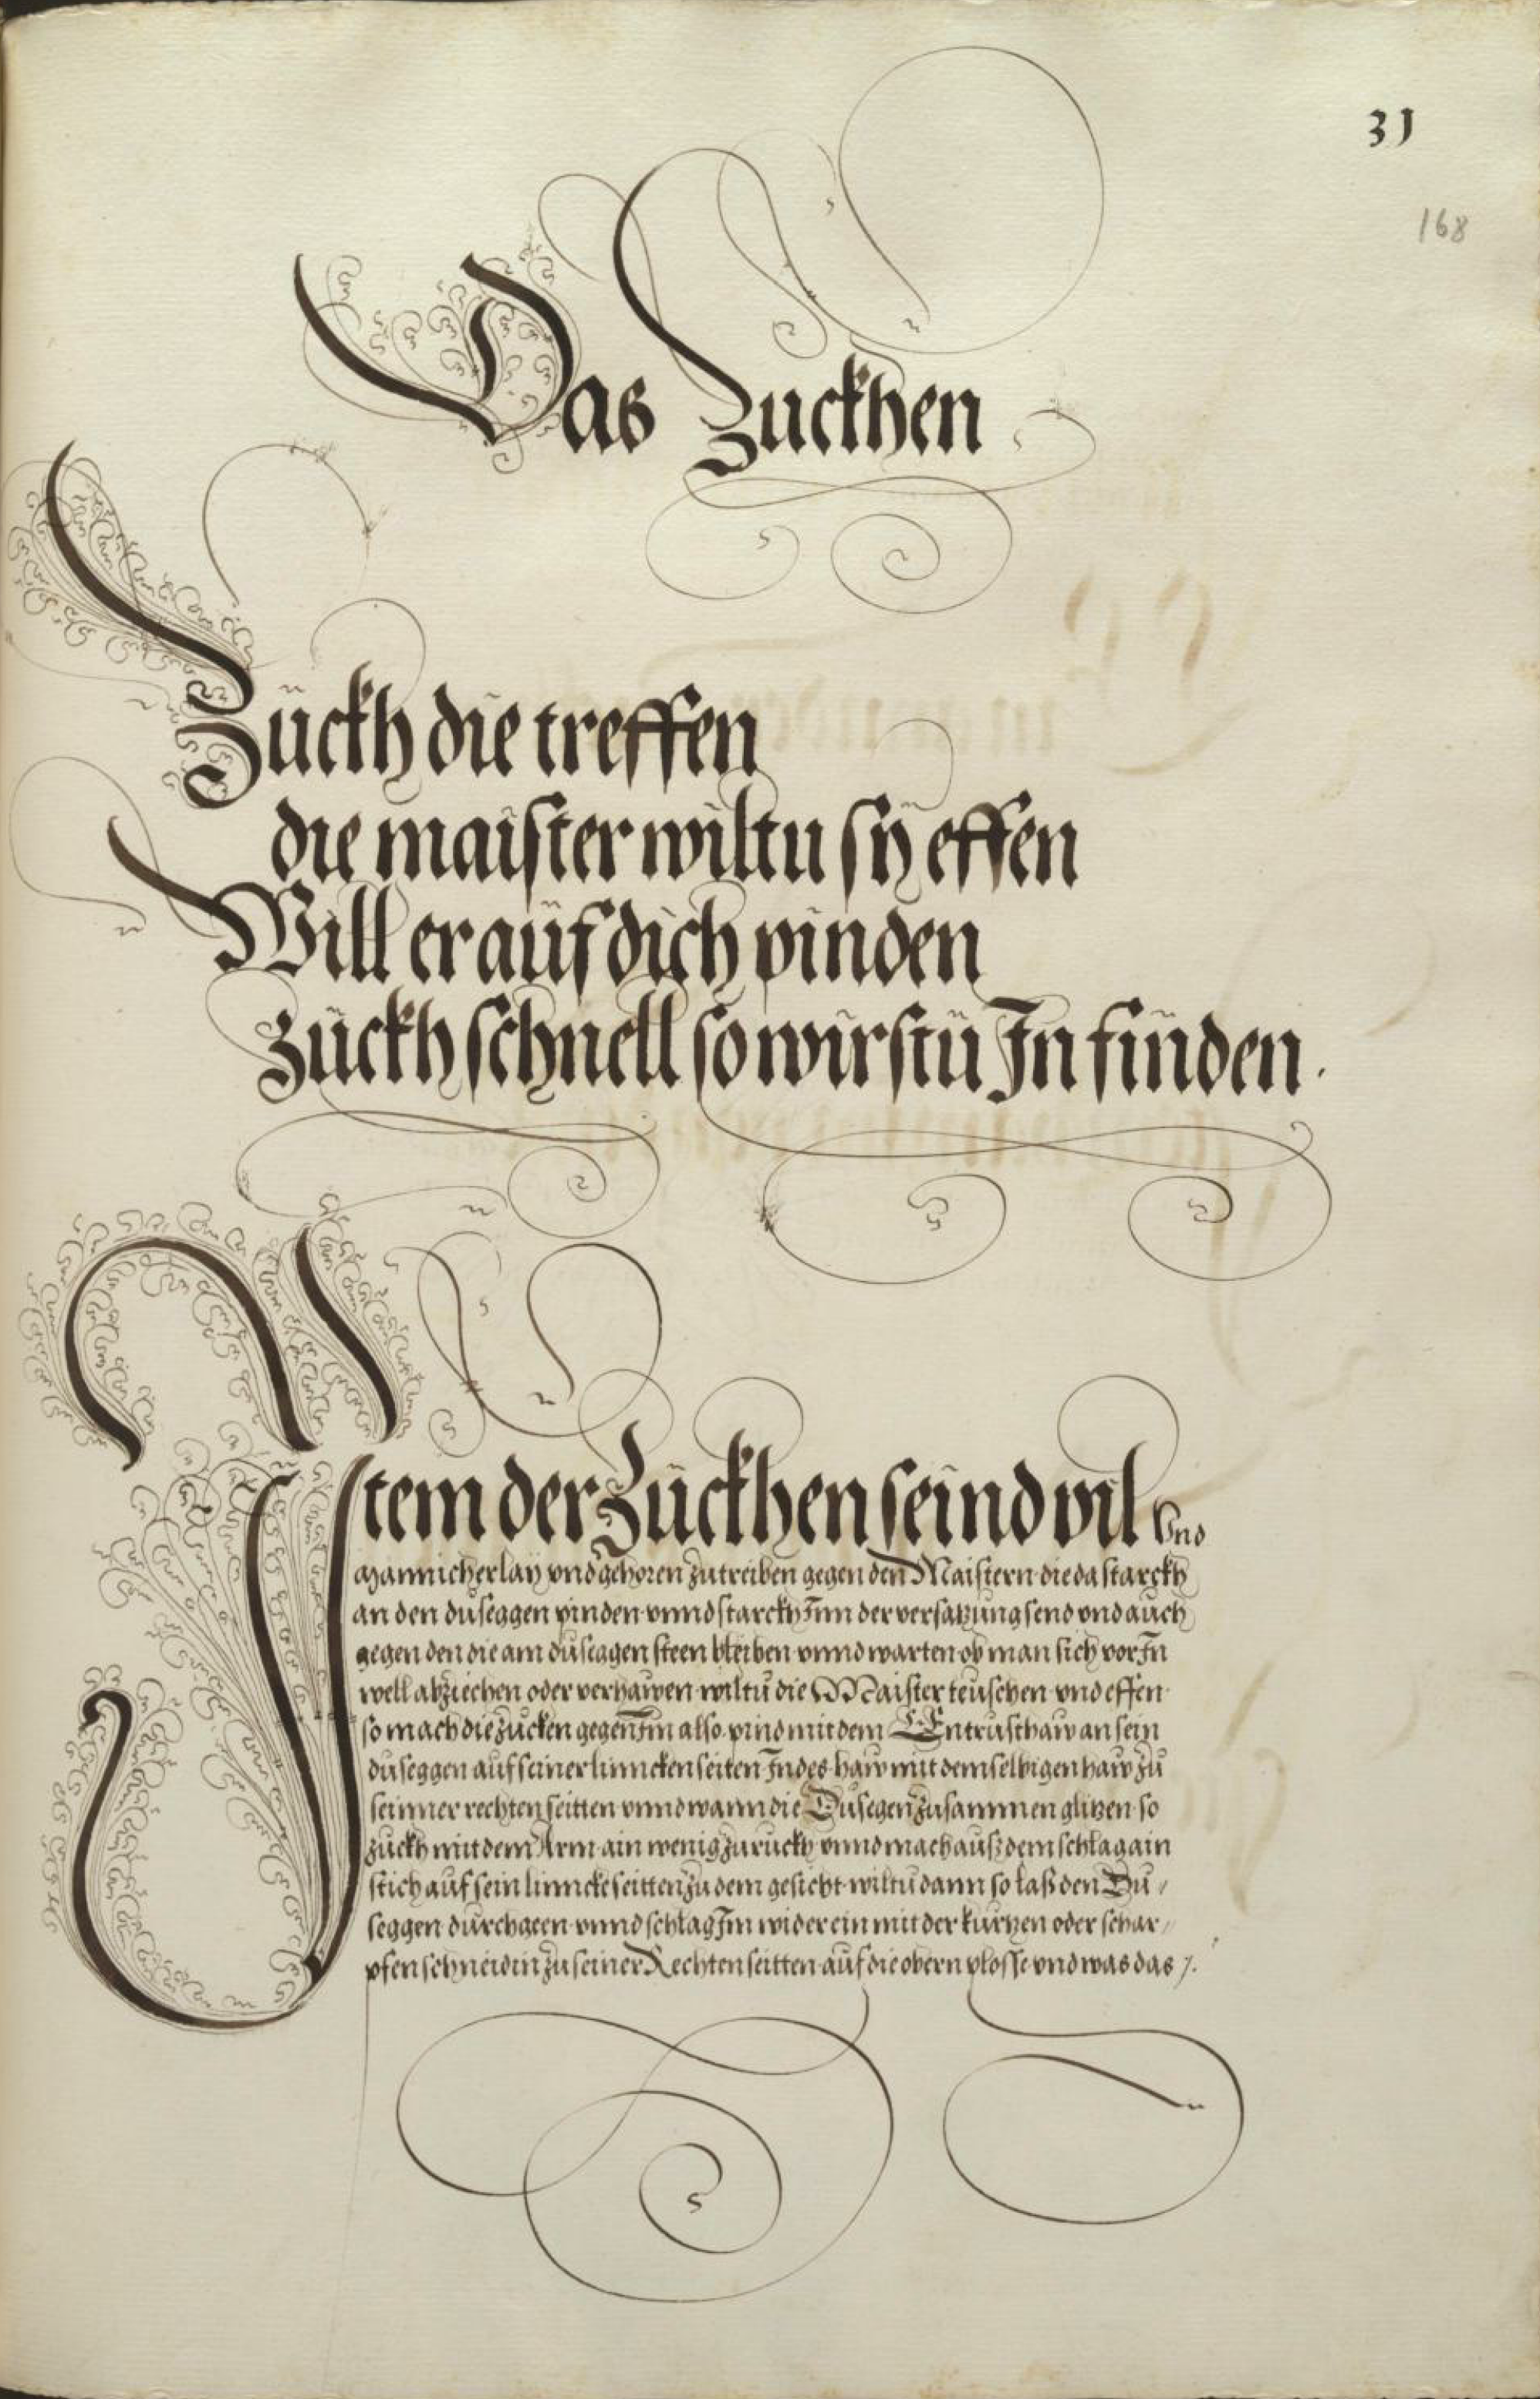 31
168
Das Zuckhen
Zückh die treffen
die maister wiltu sÿ effen
Will er aüf dich pinden
Zückh schnell so wirstü In finden.
Item der Zückhen seind vil Und
Mannicherlaÿ und gehoren zu treiben gegen den Maistern die da starckh
an den duseggen pinden unnd starckh Inn der versatzung send und auch
gegen den die am düseggen steen bleiben unnd warten ob man sich vor In
well abziechen oder verhawen wiltü die Maister teuschen und effen
so mach die zucken gegen Im also pind mit dem Entrusthaw an sein
duseggen auf seiner linncken seiten Indes haw mit dem selbigen haw zu
seinner rechten seitten unnd wann die Dusegen zusammen glitzen so
zuckh mit dem Arm ain wenig zuruckh unnd mach auß dem schlag ain
stich auf sein linncke seitten zu dem gesicht wiltu dann so laß den Du/
seggen durchgeen unnd schlag Im wider ein mit der kurtzen oder schar/
pfen schneidin zu seiner Rechten seitten auf die obern plosse und was das /.